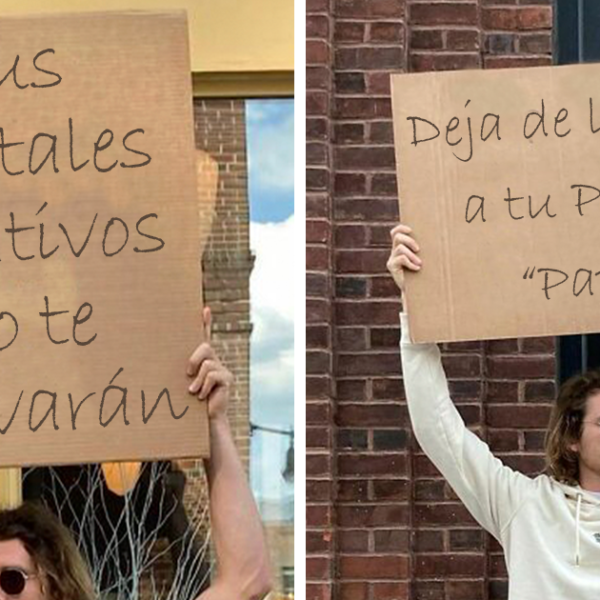 us
tales
tivos
o te
varán
Deja de l
a tu P
"Pa